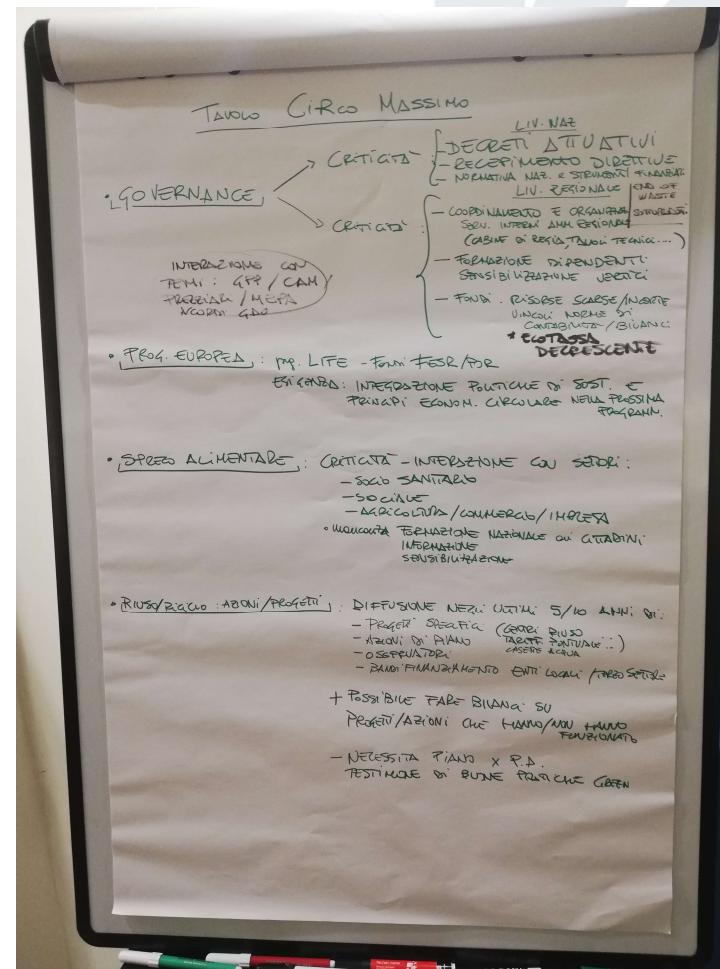 TAVOLO CIRCO MASSIMO
• GOVERNANCE
CRITICITÀ :
LIV. NAZ
- DECRETI ATTUATIVI
- RECEPIMENTO DIRETTIVE
- NORMATIVA NAZ. E STRUMENTI FINANZIARI
CRITICITÀ :
LIV. REGIONALE
END OF
WASTE
SOTTOPRODOTTI
- COORDINAMENTO E ORGANIZZ.
SERV. INTERNI AMM. REGIONALI
(CABINE DI REGIA, TAVOLI TECNICI....)
- FORMAZIONE DIPENDENTI
SENSIBILIZZAZIONE VERTICI
- FONDI. RISORSE SCARSE/INCERTE
VINCOLI NORME DI
CONTABILITÀ/BILANCI
* ECOTASSA
DECRESCENTE
INTERAZIONE CON
TEMI: GPP/CAM
PREZZIARI/MEPA
ACCORDI GDO
• PROG. EUROPEA : prg. LIFE - Fondi FESR/PSR
ESIGENZA: INTEGRAZIONE POLITICHE DI SOST. E
PRINCIPI ECONOM. CIRCOLARE NELLA PROSSIMA
PROGRAMM.
• SPRECO ALIMENTARE : CRITICITÀ - INTERAZIONE CON SETTORI :
- SOCIO SANITARIO
- SOCIALE
- AGRICOLTURA/COMMERCIO/IMPRESA
• mancanza FORMAZIONE NAZIONALE ai CITTADINI
INFORMAZIONE
SENSIBILIZZAZIONE
• RIUSO/RICICLO : AZIONI/PROGETTI : DIFFUSIONE NEGLI ULTIMI 5/10 ANNI DI:
- PROGETTI SPECIFICI (CENTRI RIUSO
- AZIONI DI PIANO TARIFF. PUNTUALE...)
- OSSERVATORI CASETTE ACQUA
- BANDI FINANZIAMENTO ENTI LOCALI/TERZO SETTORE
+ POSSIBILE FARE BILANCI SU
PROGETTI/AZIONI CHE HANNO/NON HANNO
FUNZIONATO
- NECESSITA PIANO X P.A.
TESTIMONE DI BUONE PRATICHE GREEN